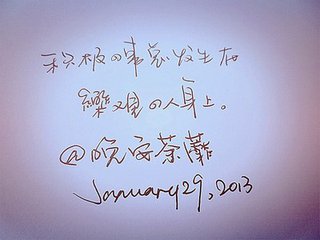 积极の事总发生在
樂观の人身上。
@晚安荼蘼
January 29, 2013